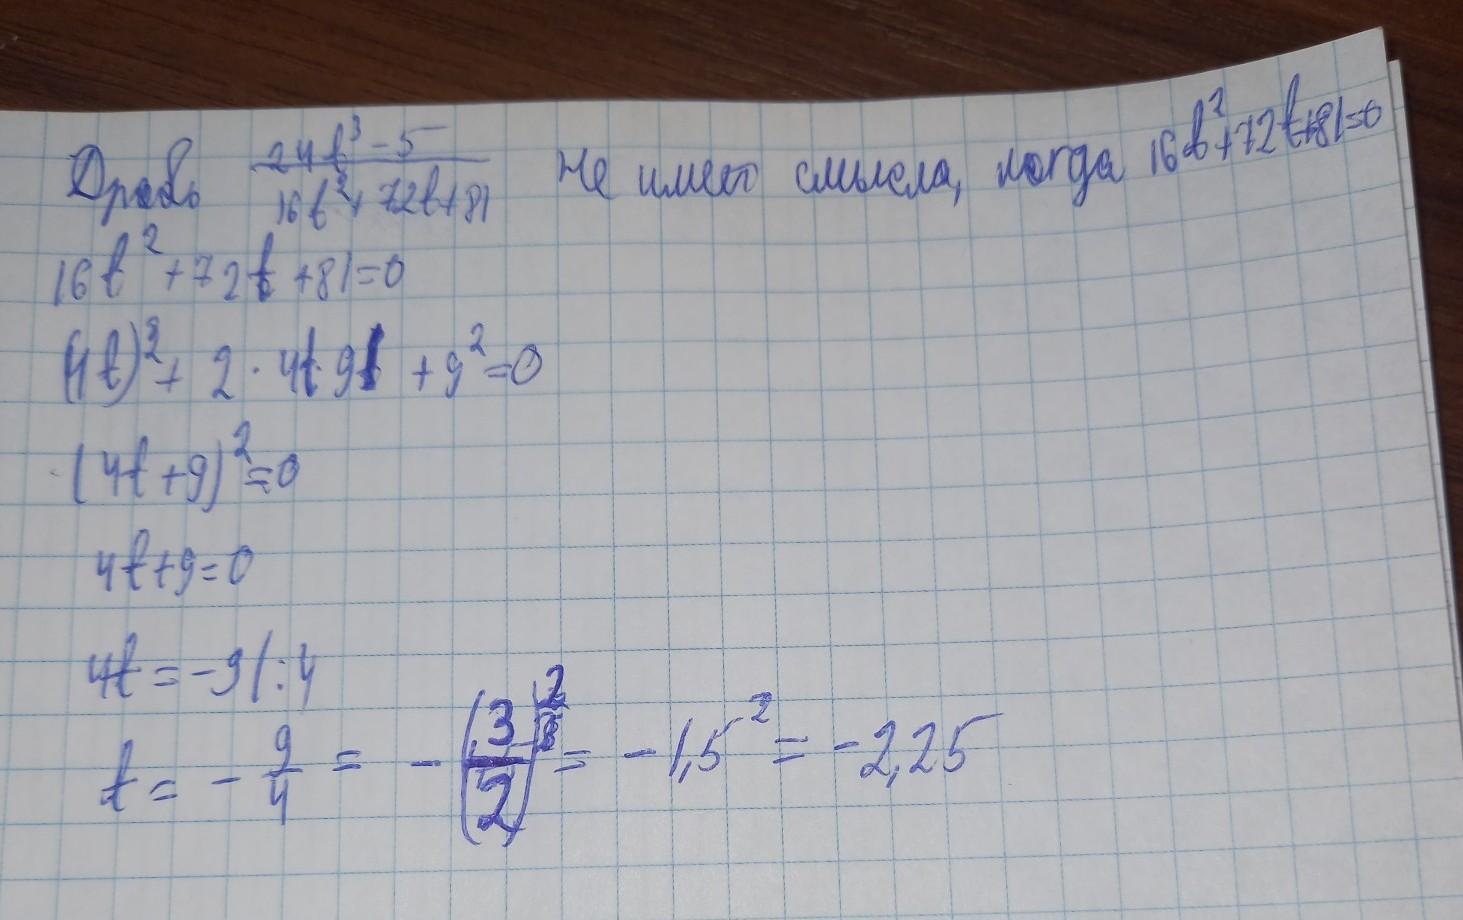 Дробь \frac{24t^3-5}{16t^2+72t+81} не имеет смысла, когда 16t^2+72t+81=0
16t^2+72t+81=0
(4t)^2+2·4t·9+9^2=0
(4t+9)^2=0
4t+9=0
4t=-9|:4
t=-\frac{9}{4}=-\left(\frac{3}{2}\right)^2=-1,5^2=-2,25